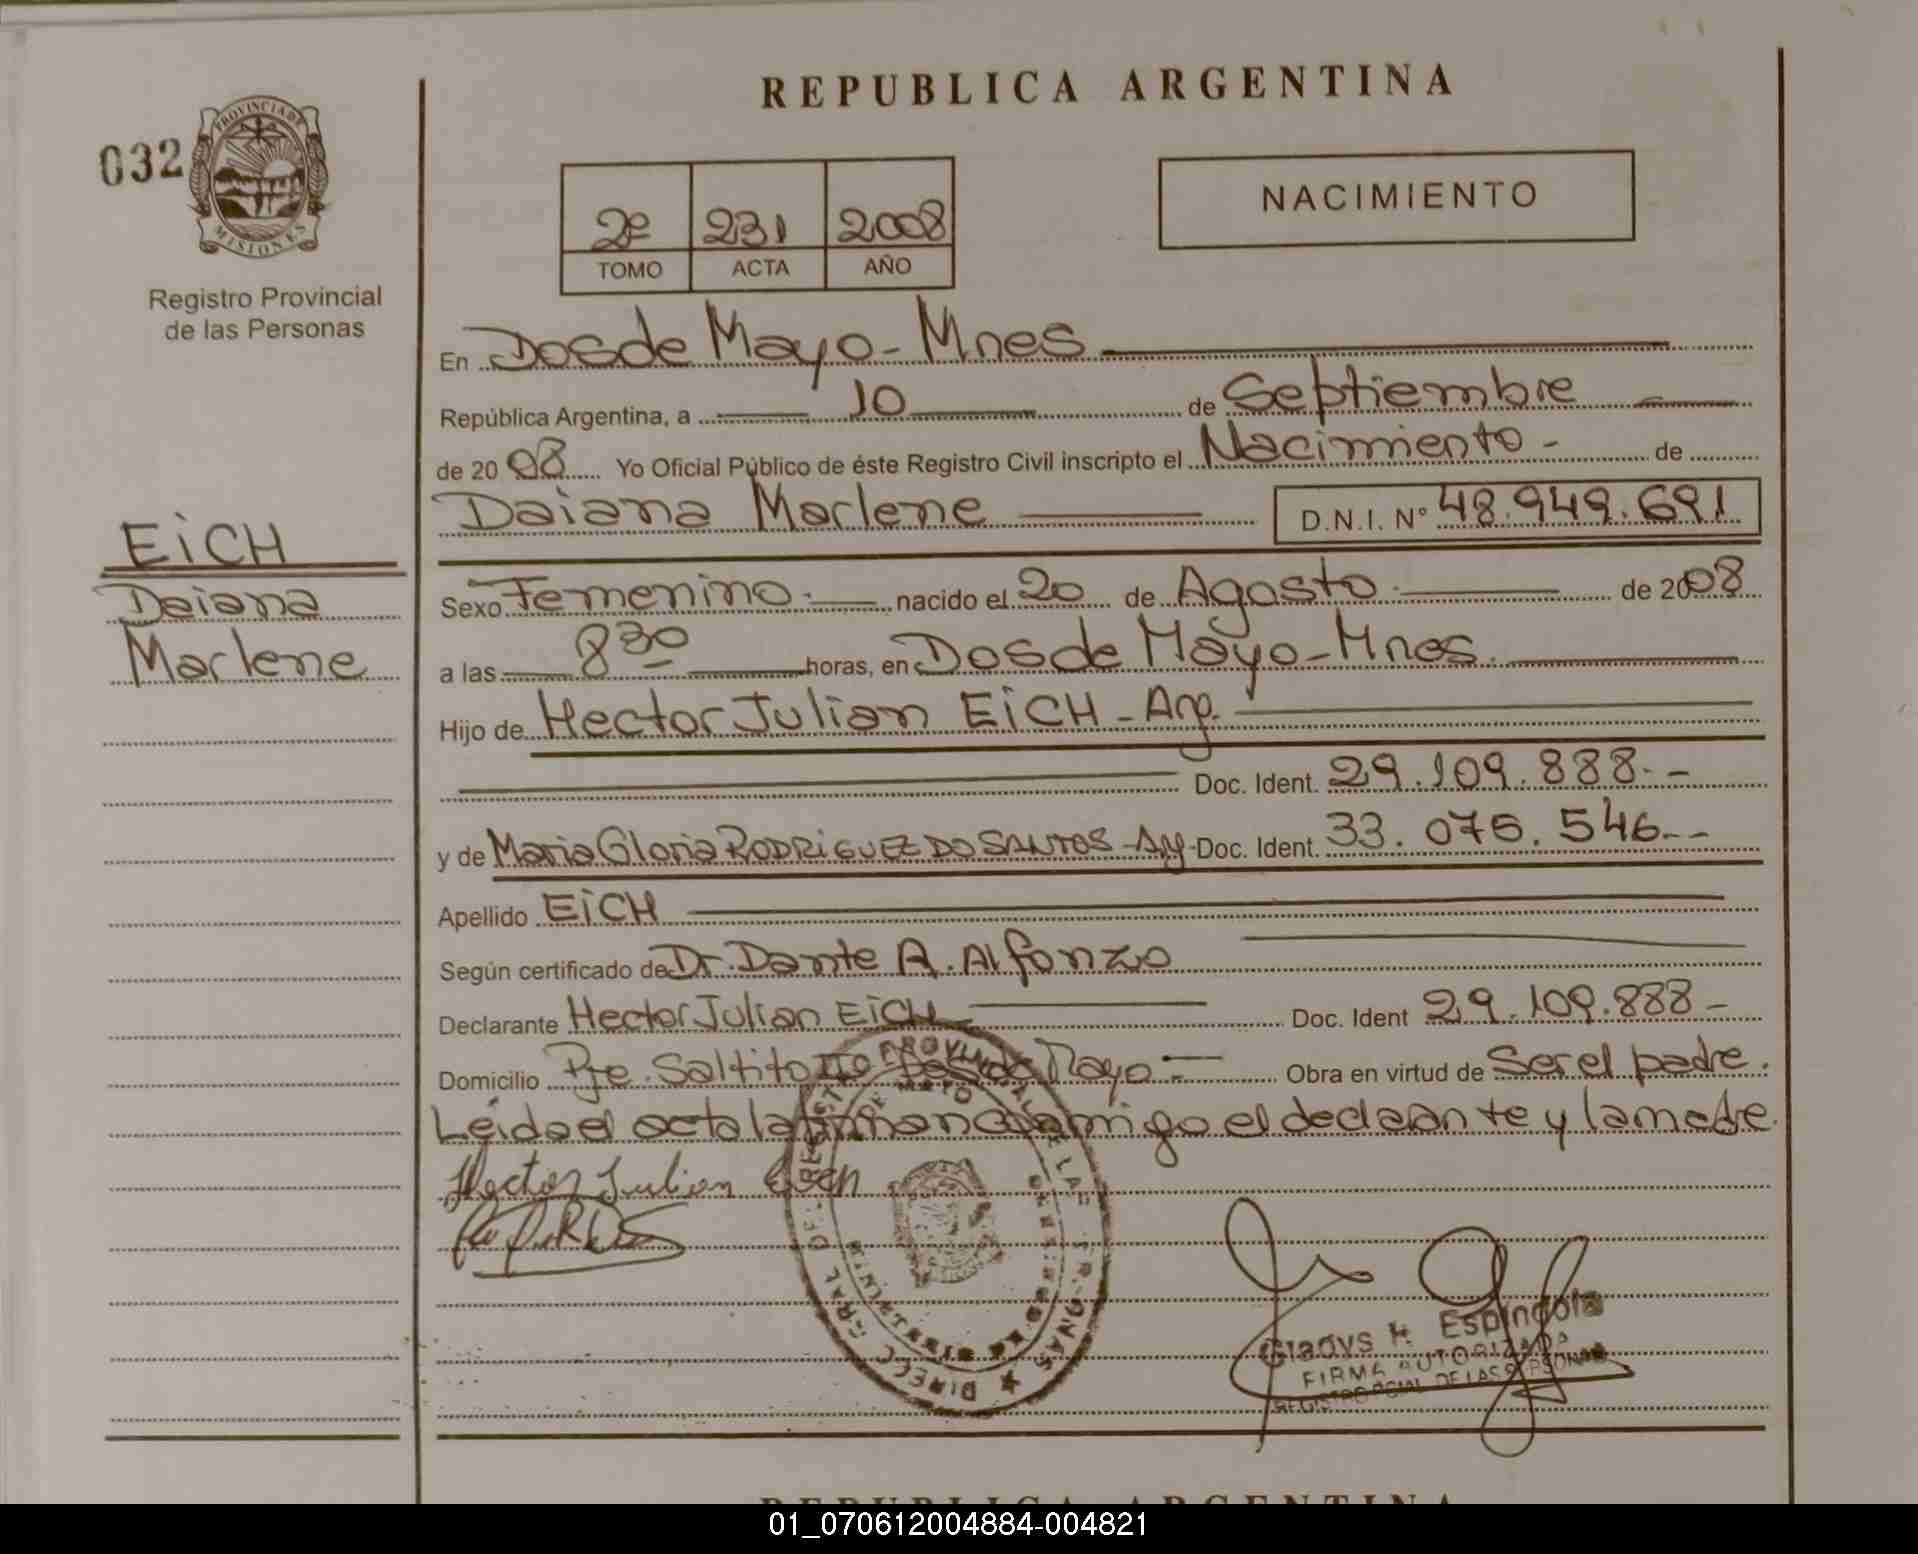 REPUBLICA ARGENTINA
032
PROVINCIA DE
MISIONES
Registro Provincial
de las Personas
2º 231 2008
TOMO ACTA AÑO
NACIMIENTO
En Dos de Mayo - Mnes
República Argentina, a 10 de Septiembre
de 2008 Yo Oficial Público de éste Registro Civil inscripto el Nacimiento - de
Daiana Marlene D.N.I. Nº 48.949.691
EiCH
Daiana
Marlene
Sexo Femenino. nacido el 20 de Agosto. de 2008
a las 8 30 horas, en Dos de Mayo - Mnes.
Hijo de Hector Julian EiCH - Arg.
Doc. Ident. 29.109.888.-
y de Maria Gloria RODRiGUEZ DOSANTOS - Arg - Doc. Ident. 33.075.546.--
Apellido EiCH
Según certificado de Dr. Dante A. Alfonzo
Declarante Hector Julian EiCH Doc. Ident 29.109.888-
Domicilio Pje. Saltito Dos de Mayo - Obra en virtud de Ser el padre.
Leida el acta la firman conmigo el declarante y la madre.
Hector Julian Eich
Gladys H. Espindola
FIRMA AUTORIZADA
REGISTRO PCIAL DE LAS PERSONAS
REPUBLICA ARGENTINA
01_070612004884-004821